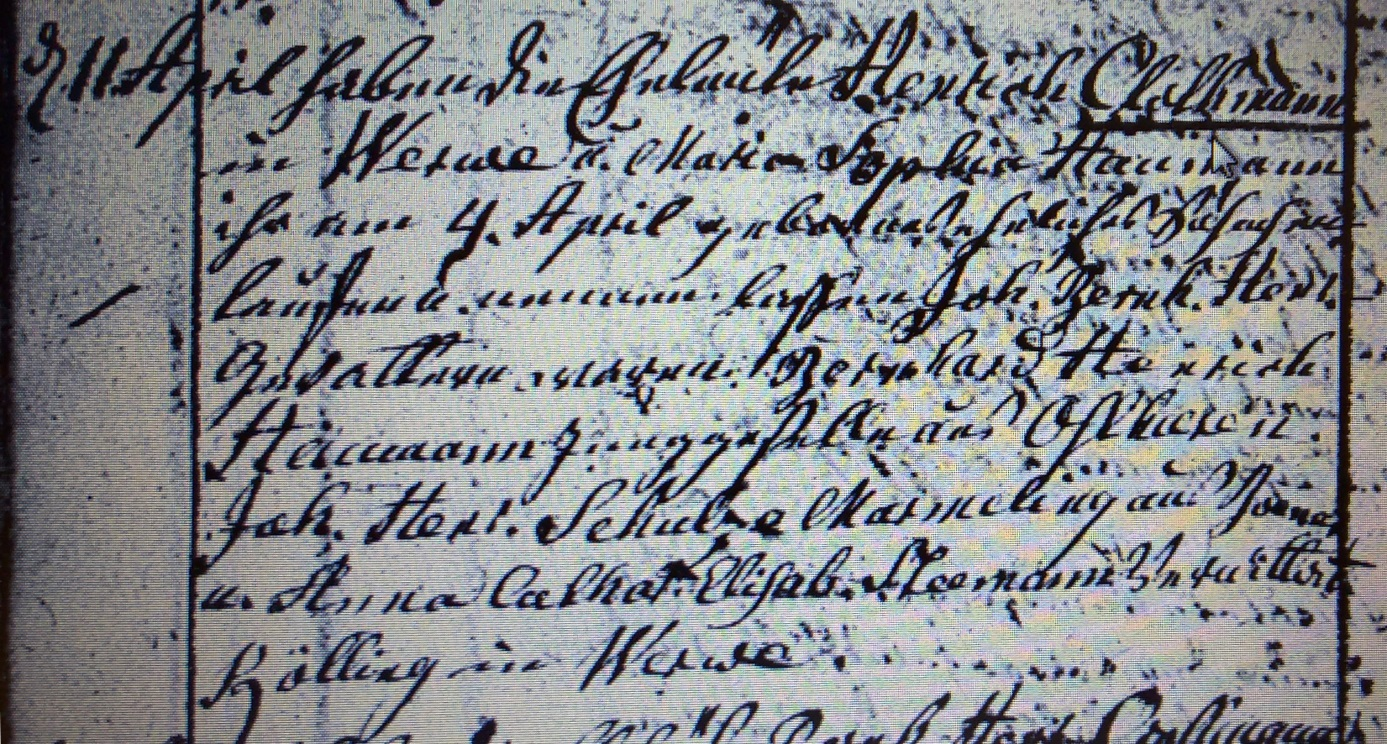 d 11 April haben die Eheleute Henrich Clotkmann
in Werwe u. Maria Sophia Haumann
ihr am 4. April gebornes eheliches Söhnchen
taufen u. nennen lassen Joh. Bernh. Henr.
Gevattern waren: Bernhard Henrich
Haumann Junggeselle aus Ostbüren u.
Joh. Henr. Schulze Marmeling aus
u. Anna Cathar. Elisab. Neemann
Bölling in Werwe.